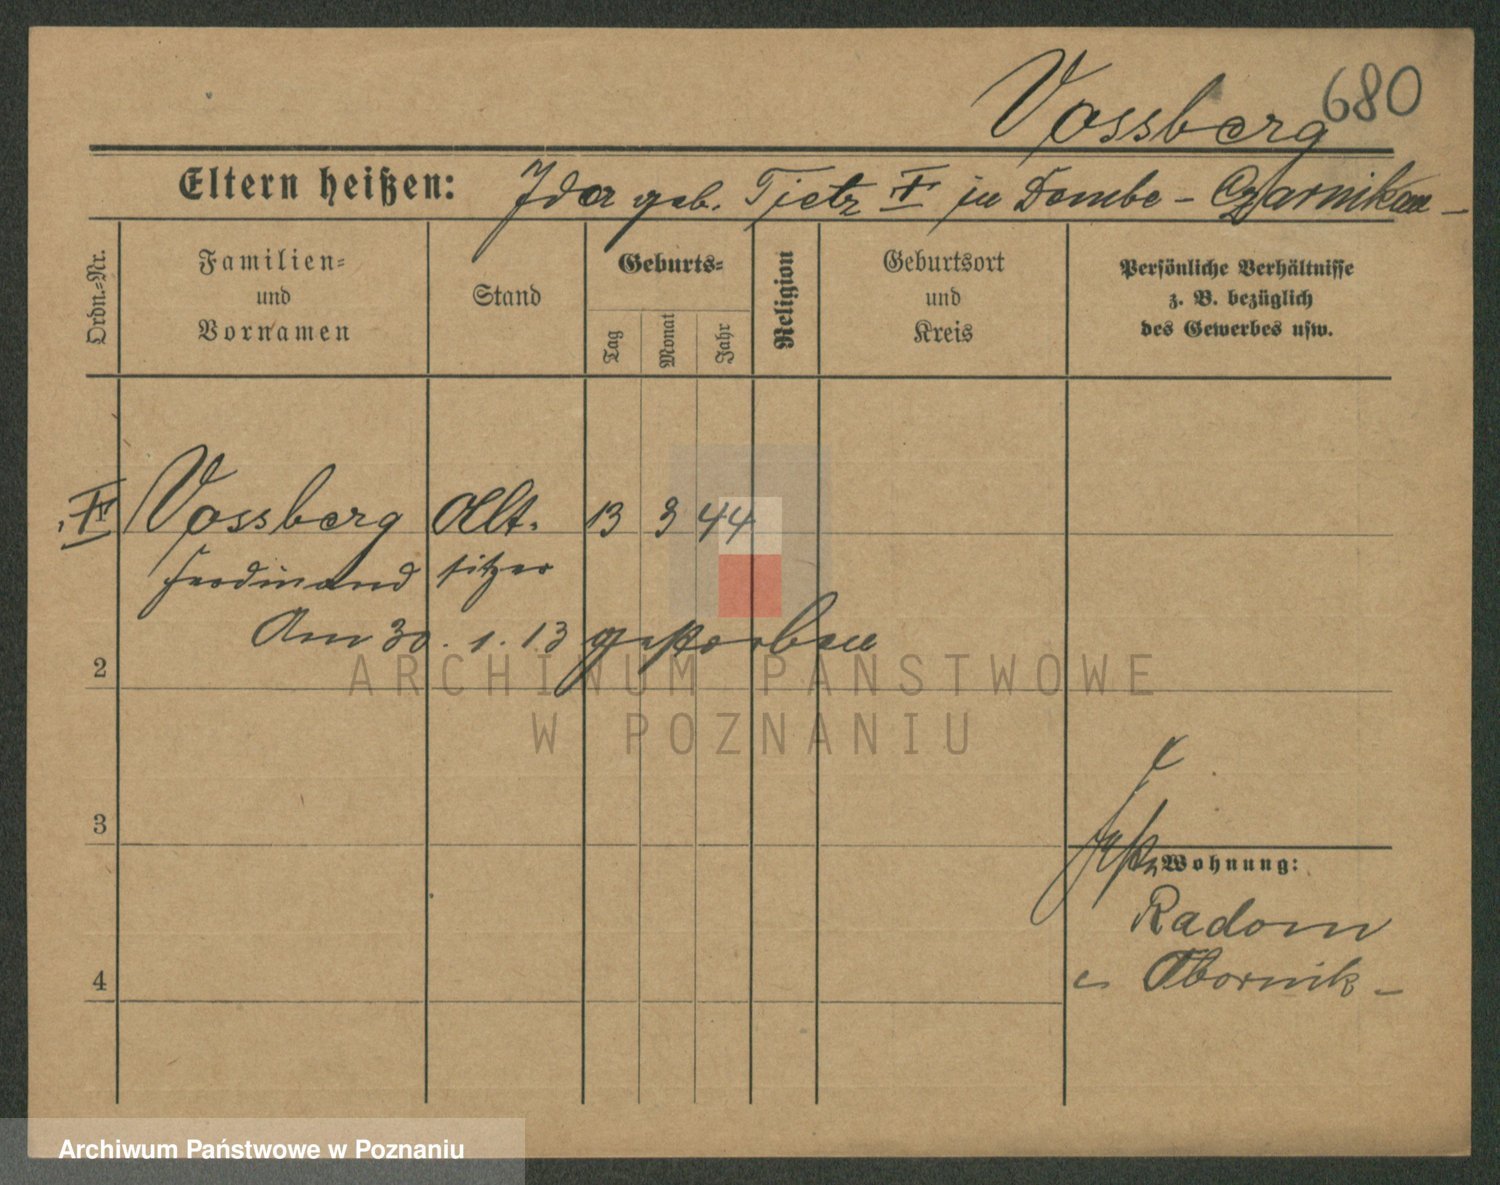 Vossberg 680
Eltern heißen: Ida geb. Tietz † in Dombe - Czarnikau -
Ordn.-Nr.
Familien-
und
Vornamen
Stand
Geburts-
Tag
Monat
Jahr
Religion
Geburtsort
und
Kreis
Persönliche Verhältnisse
z. B. bezüglich
des Gewerbes usw.
† Vossberg Alt- 13 3 44
Ferdinand sitzer
Am 30. 1. 13 gestorben
2
3
4
Wohnung:
Radom
Obornik -
ARCHIWUM PAŃSTWOWE
W POZNANIU
Archiwum Państwowe w Poznaniu